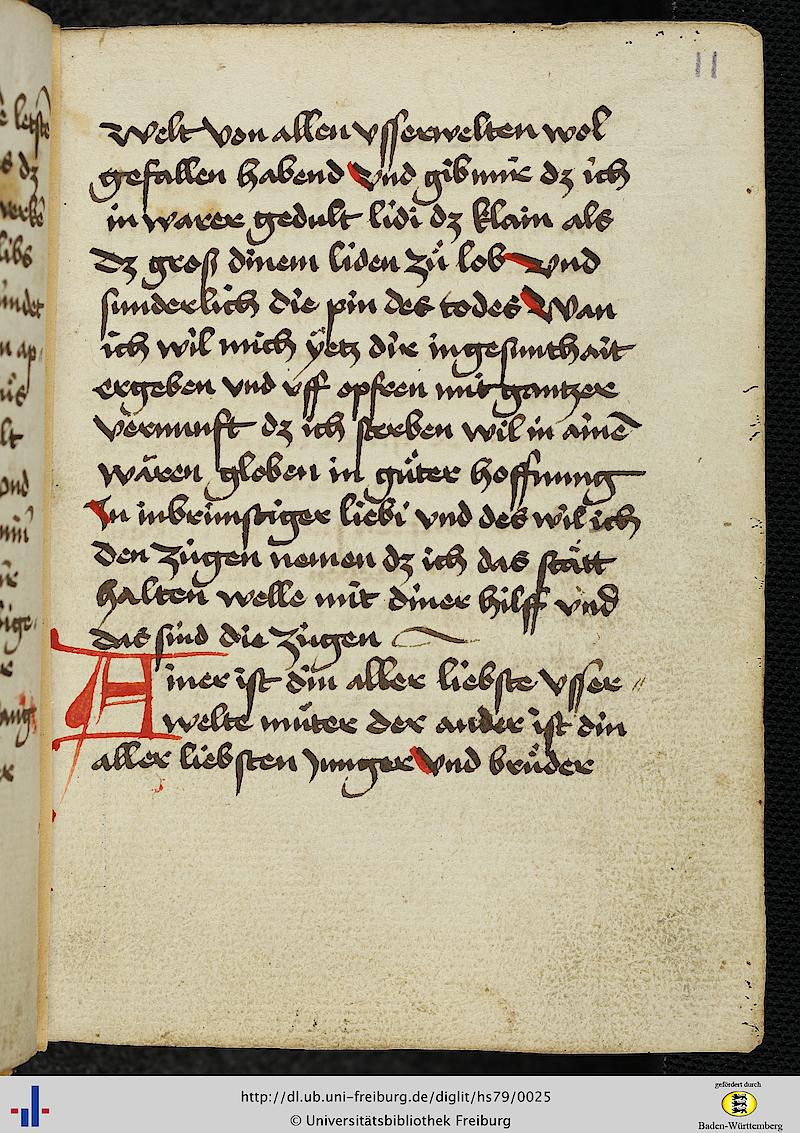 11
welt von allen vsserwelten wol
gefallen habend Vnd gib mir dz ich
in warer gedult lidi dz klain als
dz gross dinem liden zů lob Vnd
sunderlich die pin des todes Wan
ich wil mich yetz dir in gesunthait
ergeben vnd vff opfren mit gantzer
vernunft dz ich sterben wil in ainē
wären globen in gůter hoffnung
In inbrünstiger liebi vnd des wil ich
den zúgen nemen dz ich das stätt
halten welle mit diner hilff vnd
das sind die zúgen
Ainer ist din aller liebste vsser
welte můter der ander ist din
aller liebsten Junger Vnd brůder
http://dl.ub.uni-freiburg.de/diglit/hs79/0025
© Universitätsbibliothek Freiburg
gefördert durch
Baden-Württemberg